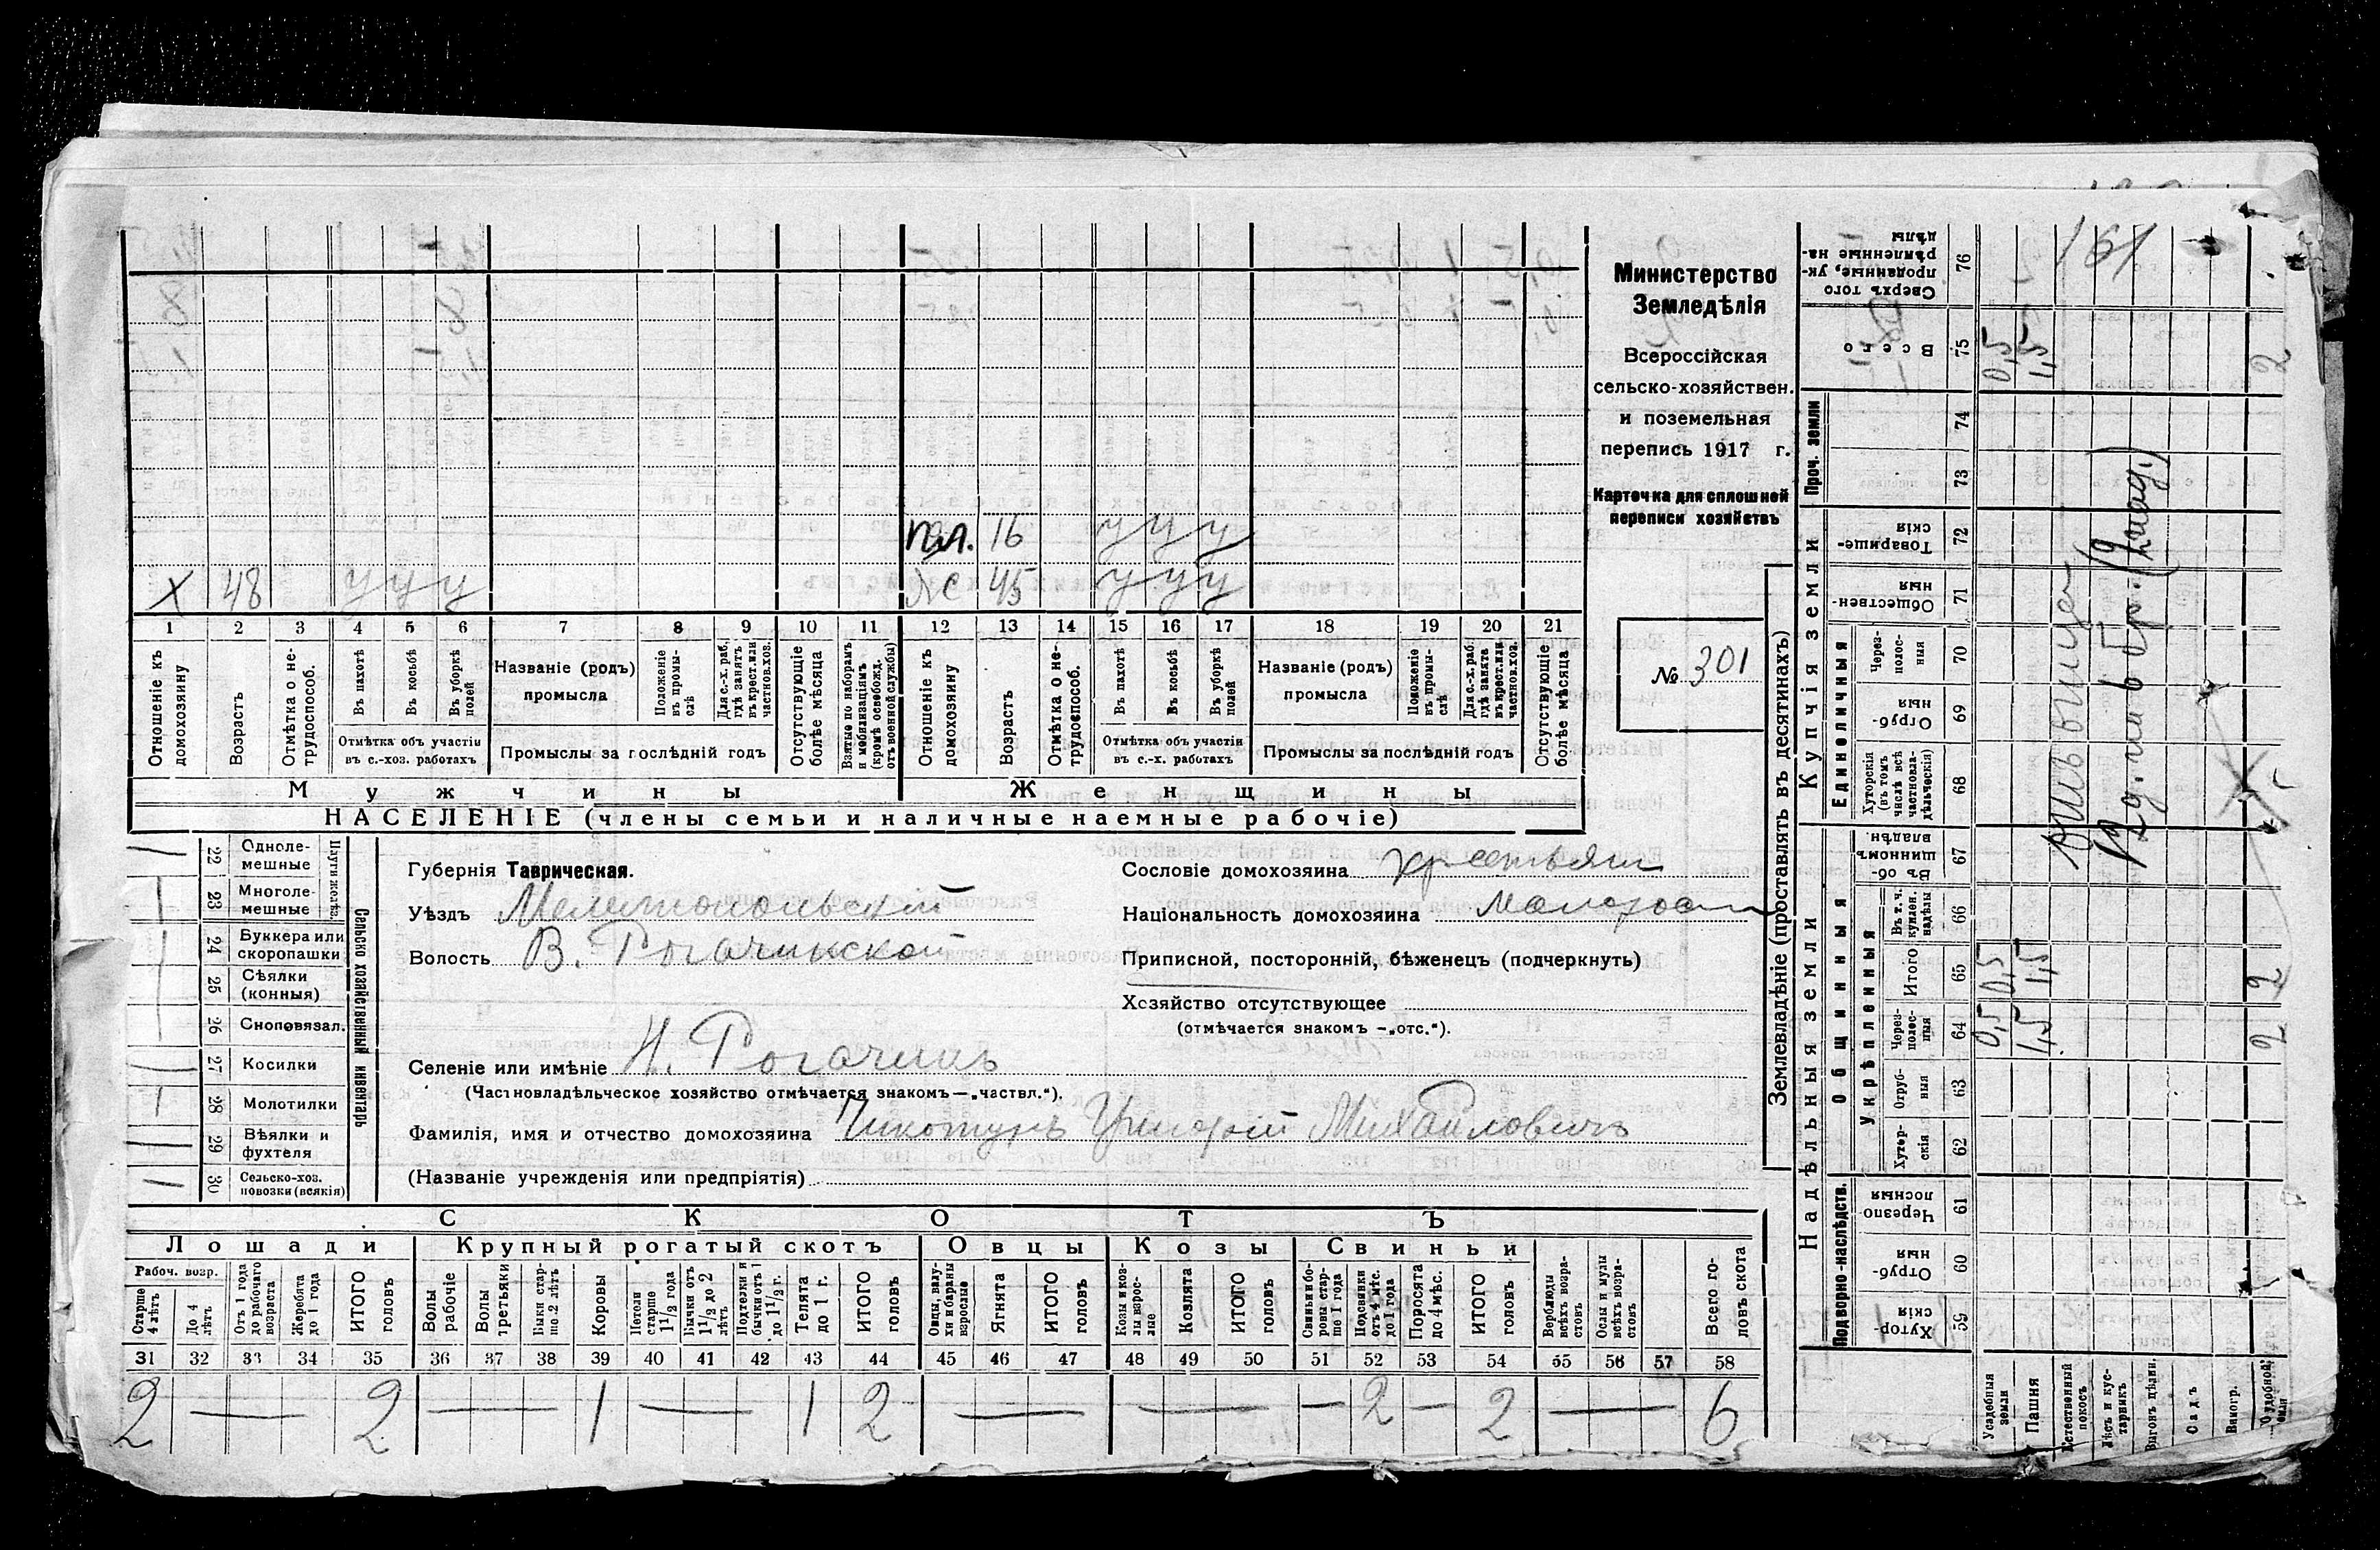 Министерство
Земледѣлія
Всероссійская
сельско-хозяйствен.
и поземельная
перепись 1917 г.
Карточка для сплошной
переписи хозяйствъ
№ 301
16 у у у
X 48 у у у
45 у у у
1 2 3 4 5 6 7 8 9 10 11 12 13 14 15 16 17 18 19 20 21
Отношеніе къ домохозяину
Возрастъ
Отмѣтка о нетрудоспособ.
Въ пахотѣ
Въ косьбѣ
Въ уборкѣ полей
Отмѣтка объ участіи
въ с.-хоз. работахъ
Названіе (родъ)
промысла
Положеніе въ промыслѣ
Для с.-х. раб. гдѣ занятъ въ крест. или частнов. хоз.
Промыслы за послѣдній годъ
Отсутствующіе болѣе мѣсяца
Взятые по наборамъ и мобилизаціямъ (кромѣ освобожд. отъ военной службы)
Отношеніе къ домохозяину
Возрастъ
Отмѣтка о нетрудоспособ.
Въ пахотѣ
Въ косьбѣ
Въ уборкѣ полей
Отмѣтка объ участіи
въ с.-х. работахъ
Названіе (родъ)
промысла
Положеніе въ промыслѣ
Для с.-х. раб. гдѣ занята въ крест. или частнов. хоз.
Промыслы за послѣдній годъ
Отсутствующіе болѣе мѣсяца
Мужчины Женщины
НАСЕЛЕНІЕ (члены семьи и наличные наемные рабочіе)
22 Однолемешные
23 Многолемешные
Плуги желѣз.
24 Буккера или скоропашки
25 Сѣялки (конныя)
26 Сноповязал.
27 Косилки
28 Молотилки
29 Вѣялки и фухтеля
30 Сельско-хоз. повозки (всякія)
Сельско хозяйственный инвентарь
Губернія Таврическая.
Уѣздъ Мелитопольскій
Волость В. Рогачикской
Селеніе или имѣніе Н. Рогачикъ
(Частновладѣльческое хозяйство отмѣчается знакомъ—„частвл.“).
Фамилія, имя и отчество домохозяина Чикотунъ Григорій Михайловичъ
(Названіе учрежденія или предпріятія)
Сословіе домохозяина
Національность домохозяина
Приписной, посторонній, бѣженецъ (подчеркнуть)
Хозяйство отсутствующее
(отмѣчается знакомъ —„отс.“).
СКОТЪ
Лошади Крупный рогатый скотъ Овцы Козы Свиньи
Рабоч. возр.
Старше 4 лѣтъ
До 4 лѣтъ
Отъ 1 года до рабочаго возраста
Жеребята до 1 года
ИТОГО головъ
Волы рабочіе
Волы третьяки
Быки старше 2 лѣтъ
Коровы
Нетели старше 1 1/2 года
Бычки отъ 1 1/2 до 2 лѣтъ
Подтелки и бычки отъ 1 до 1 1/2 г.
Телята до 1 г.
ИТОГО головъ
Овцы, валухи и бараны взрослые
Ягнята
ИТОГО головъ
Козы и козлы взрослые
Козлята
ИТОГО головъ
Свиньи и боровы старше 1 года
Подсвинки отъ 4 мѣс. до 1 года
Поросята до 4 мѣс.
ИТОГО головъ
Верблюды всѣхъ возрастовъ
Ослы и мулы всѣхъ возрастовъ
Всего головъ скота
31 32 33 34 35 36 37 38 39 40 41 42 43 44 45 46 47 48 49 50 51 52 53 54 55 56 57 58
2 — 2 — 1 — 1 2 — — — 2 — 2 — 6
Землевладѣніе (проставлять въ десятинахъ)
Надѣльныя земли
Купчія земли
Проч. земли
Подворно-наслѣдств.
Общинныя
Укрѣпленныя
Единоличныя
59 Хуторскія
60 Отрубныя
61 Черезполосныя
62 Хуторскія
63 Отрубныя
64 Черезполосныя
65 Итого
66 Въ т. ч. куплен. надѣлы
67 Въ общинномъ владѣн.
68 Хуторскія (въ томъ числѣ всѣ частновладѣльческія)
69 Отрубныя
70 Черезполосныя
71 Общественныя
72 Товарищескія
73
74
75 Всего
76 Сверхъ того проданные, укрѣпленные надѣлы
Усадебныя земли
0,5 0,5 0,5
Пашня
1,5 1,5 1,5
Естественный покосъ
Лѣсъ и кустарникъ
Выгонъ дѣлим.
Садъ
Виногр.
2 2 2
161